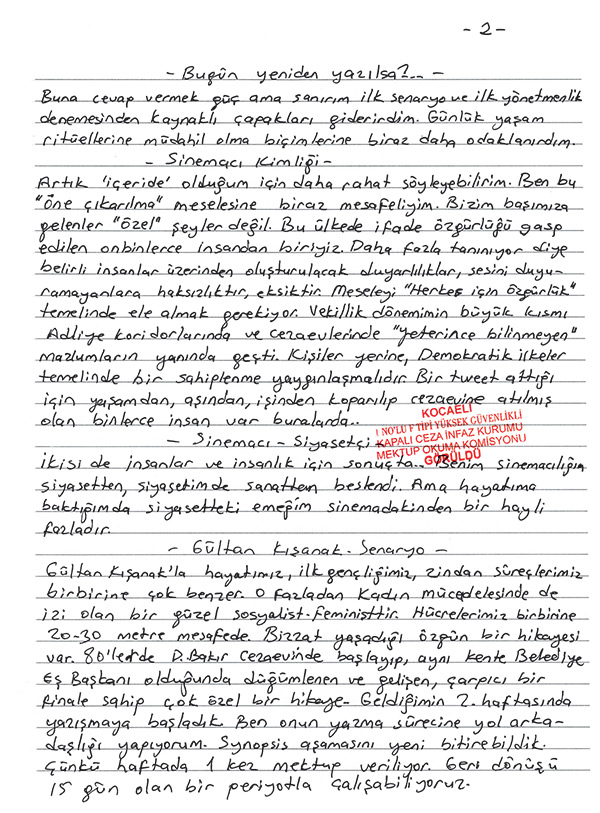 - 2 -
- Bugün yeniden yazılsa?.. -
Buna cevap vermek güç ama sanırım ilk senaryo ve ilk yönetmenlik
denemesinden kaynaklı çapakları giderirdim. Günlük yaşam
ritüellerine müdahil olma biçimlerine biraz daha odaklanırdım.
- Sinemacı Kimliği -
Artık 'içeride' olduğum için daha rahat söyleyebilirim. Ben bu
"öne çıkarılma" meselesine biraz mesafeliyim. Bizim başımıza
gelenler "özel" şeyler değil. Bu ülkede ifade özgürlüğü gasp
edilen onbinlerce insandan biriyiz. Daha fazla tanınıyor diye
belirli insanlar üzerinden oluşturulacak duyarlılıklar, sesini duyu-
ramayanlara haksızlıktır, eksiktir. Meseleyi "Herkes için özgürlük"
temelinde ele almak gerekiyor. Vekillik dönemimin büyük kısmı
Adliye koridorlarında ve cezaevlerinde "yeterince bilinmeyen"
mazlumların yanında geçti. Kişiler yerine, Demokratik ilkeler
temelinde bir sahiplenme yaygınlaşmalıdır. Bir tweet attığı
için yaşamdan, aşından, işinden koparılıp cezaevine atılmış
olan binlerce insan var buralarda..
KOCAELİ
1 NO'LU F TİPİ YÜKSEK GÜVENLİKLİ
KAPALI CEZA İNFAZ KURUMU
MEKTUP OKUMA KOMİSYONU
GÖRÜLDÜ
- Sinemacı - Siyasetçi -
ikisi de insanlar ve insanlık için sonuçta.. Benim sinemacılığım
siyasetten, siyasetim de sanattan beslendi. Ama hayatıma
baktığımda siyasetteki emeğim sinemadakinden bir hayli
fazladır.
- Gültan Kışanak - Senaryo -
Gültan Kışanak'la hayatımız, ilk gençliğimiz, zindan süreçlerimiz
birbirine çok benzer. O fazladan Kadın mücedelesinde de
izi olan bir güzel sosyalist-feministtir. Hücrelerimiz birbirine
20-30 metre mesafede. Bizzat yaşadığı özgün bir hikayesi
var. 80'lerde D.Bakır Cezaevinde başlayıp, aynı kente Belediye
Eş Başkanı olduğunda düğümlenen ve gelişen, çarpıcı bir
finale sahip çok özel bir hikaye. Geldiğimin 2. haftasında
yazışmaya başladık. Ben onun yazma sürecine yol arka-
daşlığı yapıyorum. Synopsis aşamasını yeni bitirebildik.
Çünkü haftada 1 kez mektup veriliyor. Geri dönüşü
15 gün olan bir periyotla çalışabiliyoruz.